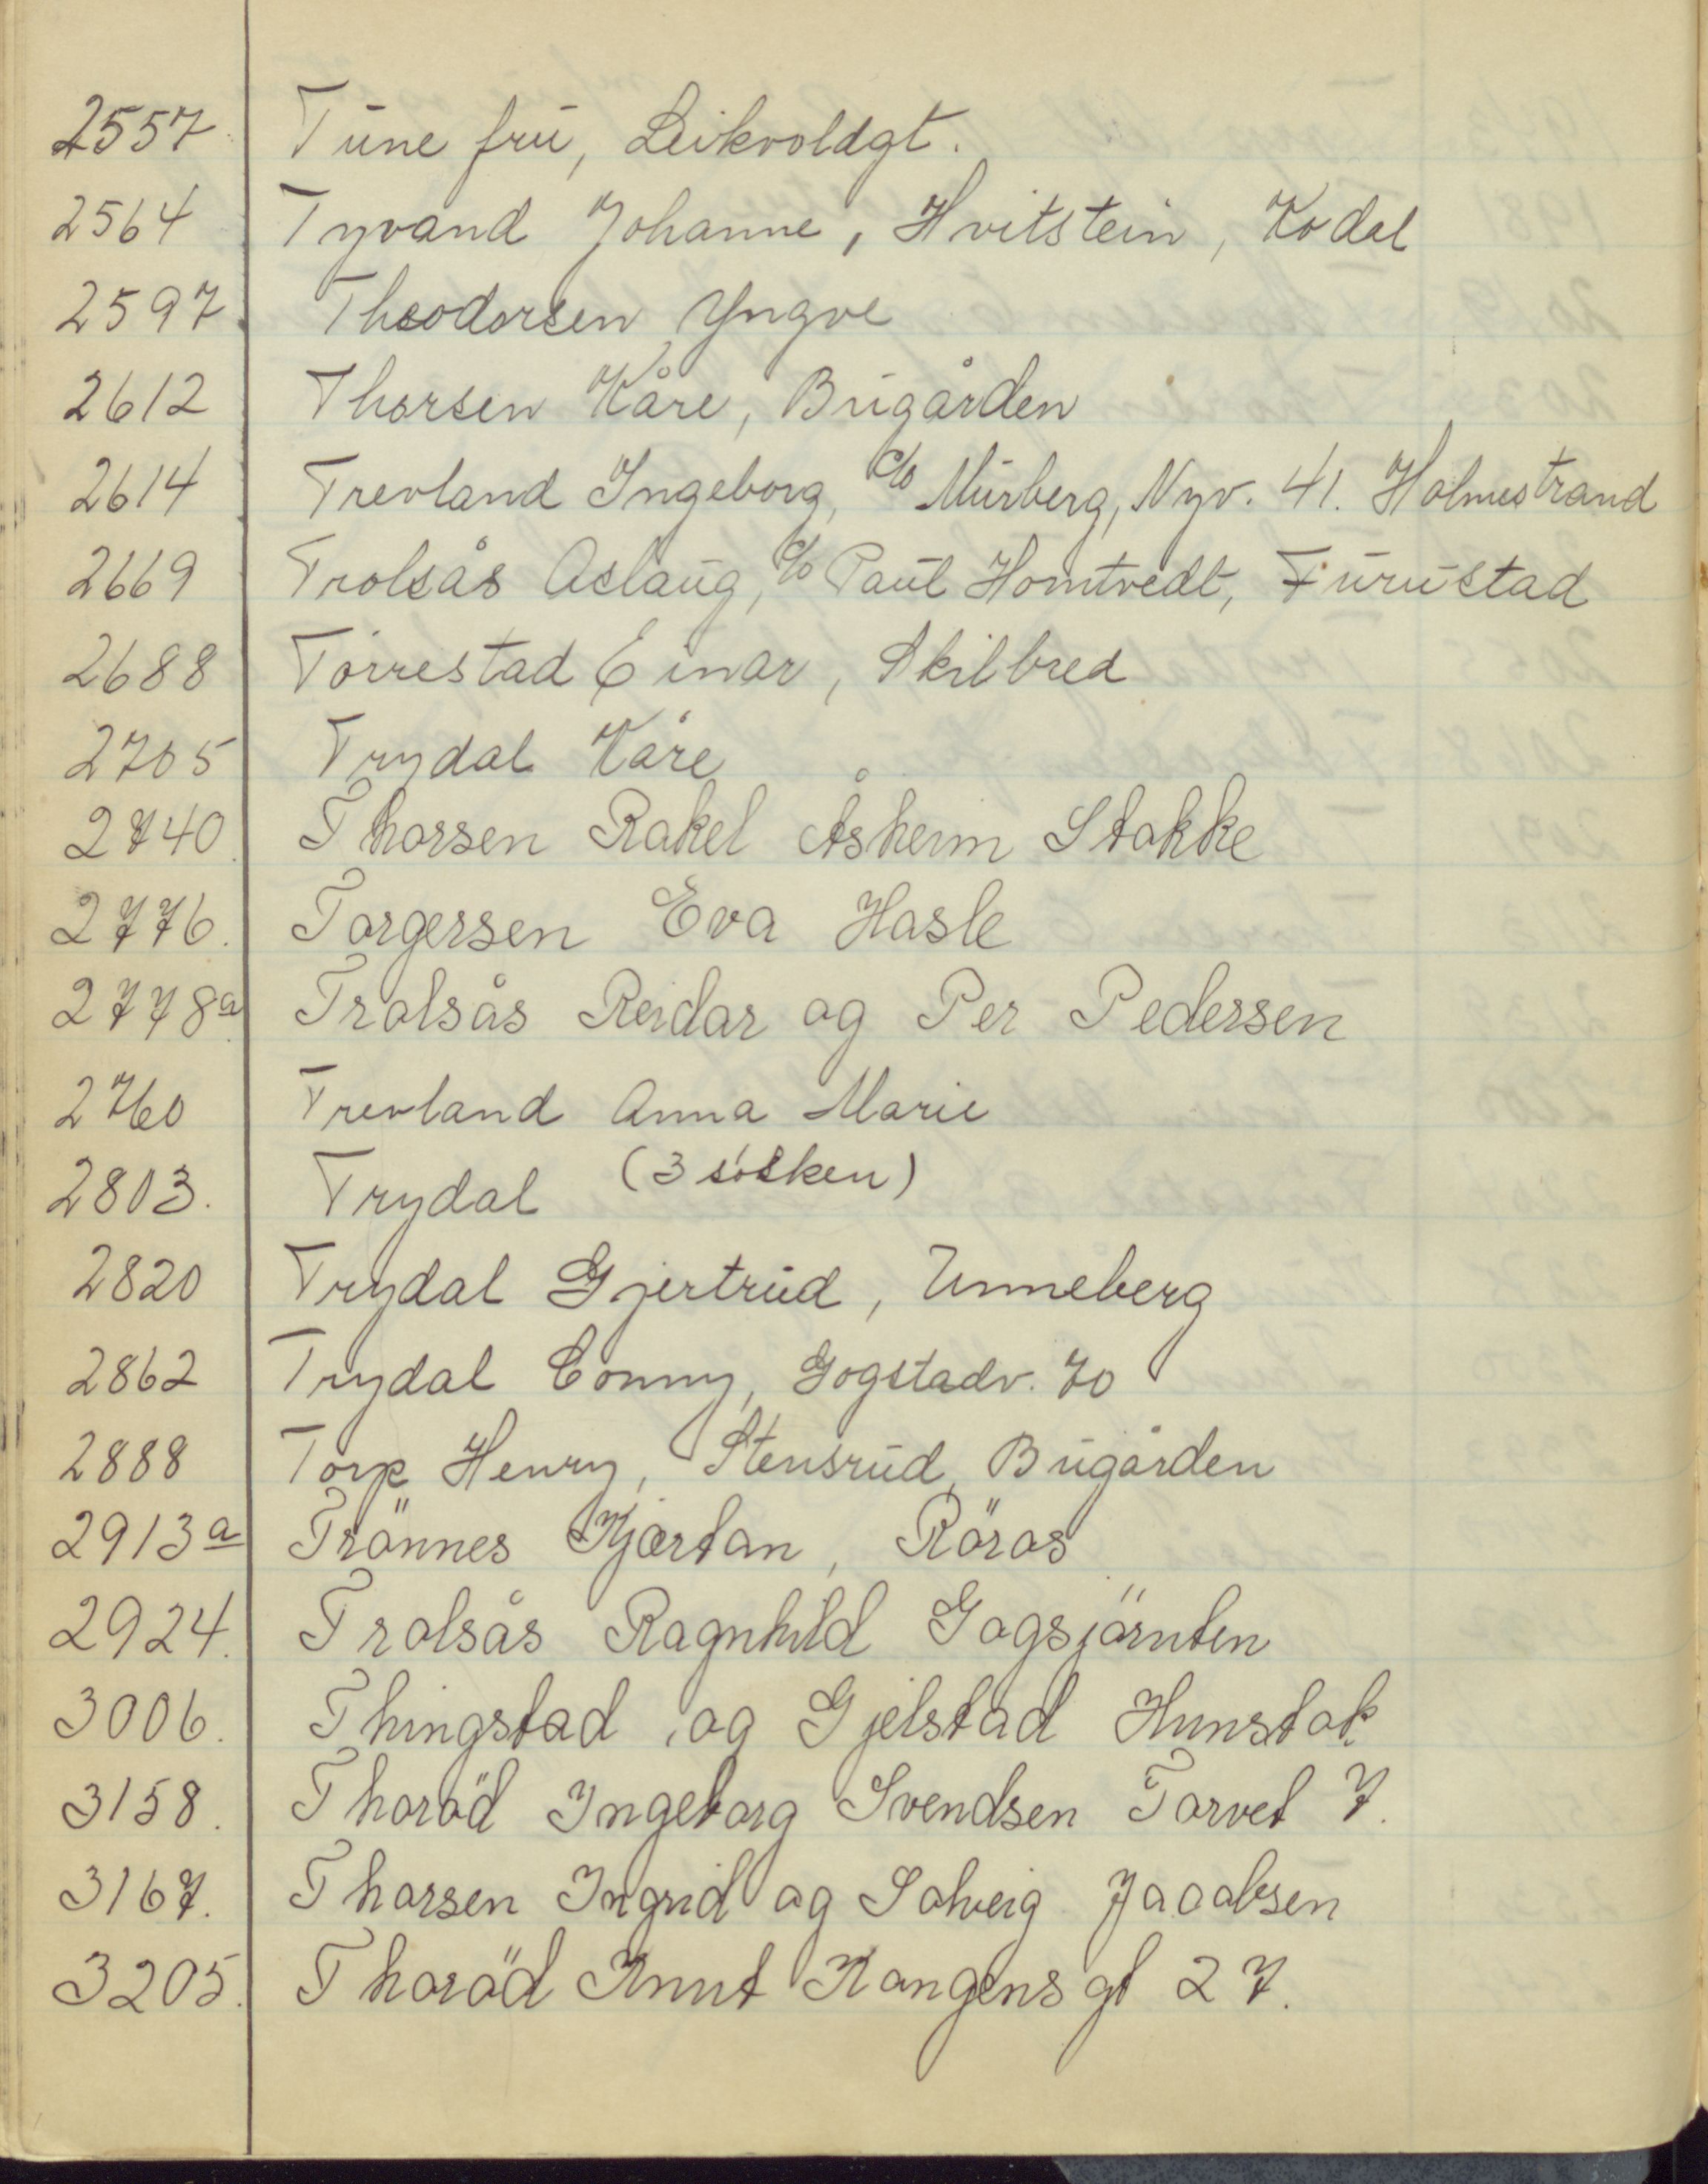 2557 Tune fru, Leikvoldgt.
2564 Tyvand Johanne, Hvitstein, Kodal
2597 Theodorsen Yngve
2612 Thorsen Kåre, Bugården
2614 Trevland Ingeborg, c/o Murberg, Nyv. 41. Holmestrand
2669 Trolsås Aslaug, c/o Paul Homtvedt, Furustad
2688 Tørrestad Einar, Skilbred
2705 Trydal Kåre
2740 Thorsen Rakel Åsheim Stokke
2776. Torgersen Eva Hasle
2778a Trolsås Reidar og Per Pedersen
2760 Trevland Anna Marie
2803. Trydal (3 søsken)
2820 Trydal Gjertrud, Unneberg
2862 Trydal Conny, Gogstadv. 70
2888 Torp Henry, Stensrud, Bugården
2913a Trönnes Kjartan, Röros
2924. Trolsås Ragnhild Gogsjörnten
3006. Thingstad og Gjelstad Hunstok
3158. Thoröd Ingeborg Svendsen Torvet 7.
3167. Thorsen Ingrid og Solveig Jacobsen
3205. Thoröd Knut Kongensgt 27.